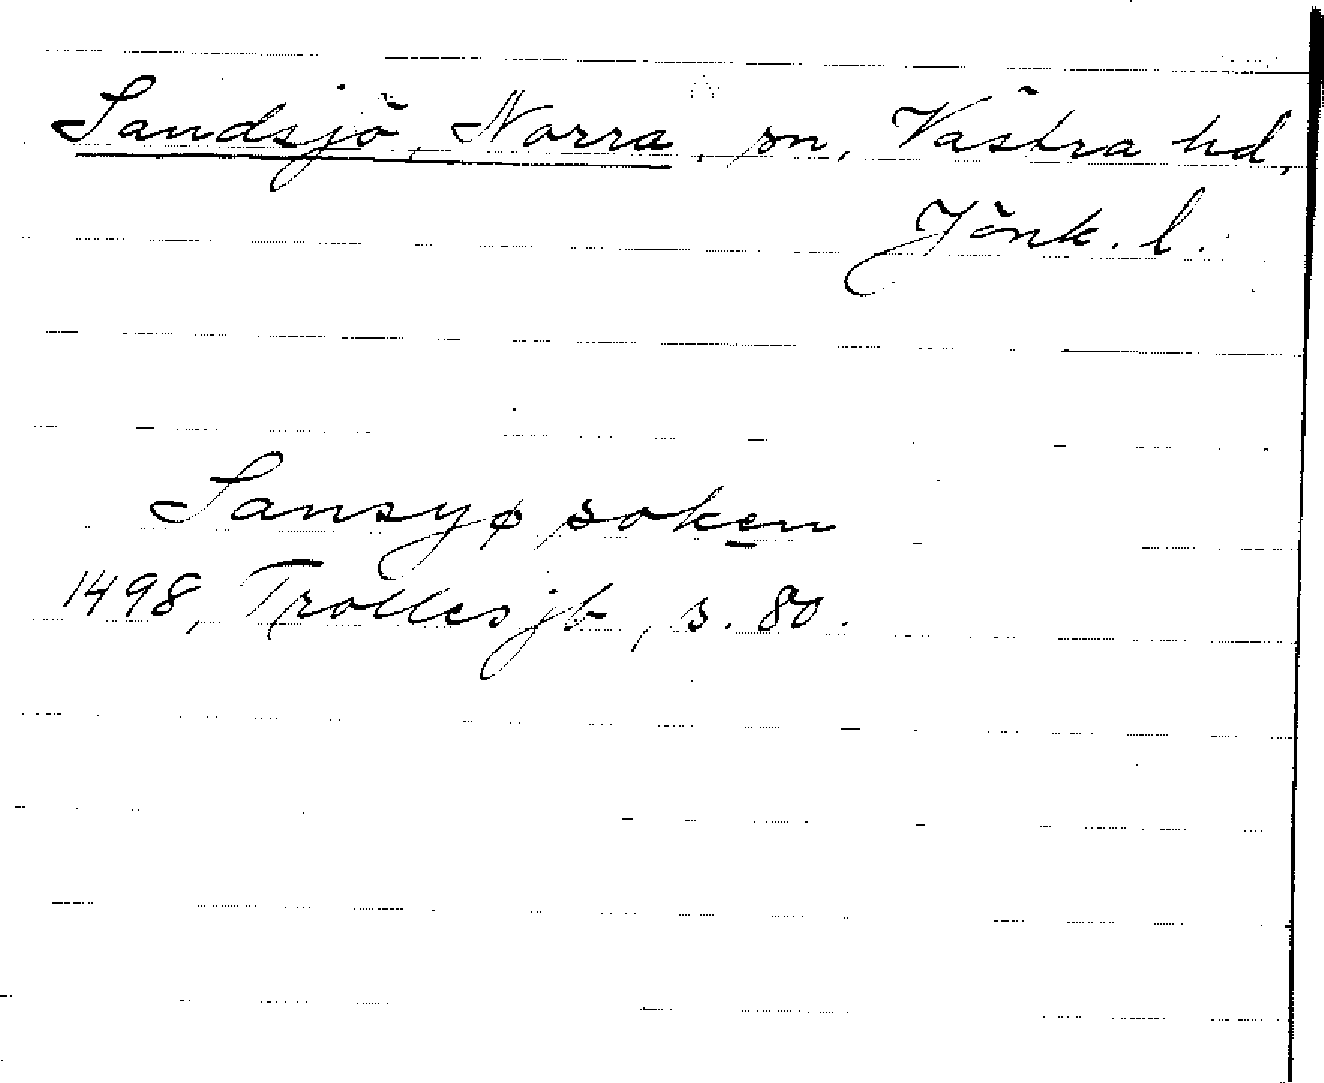 Sandsjö, Norra, sn, Västra hd,
Jönk. l.
Sansyø soken
1498, Trolles jb, s. 80.